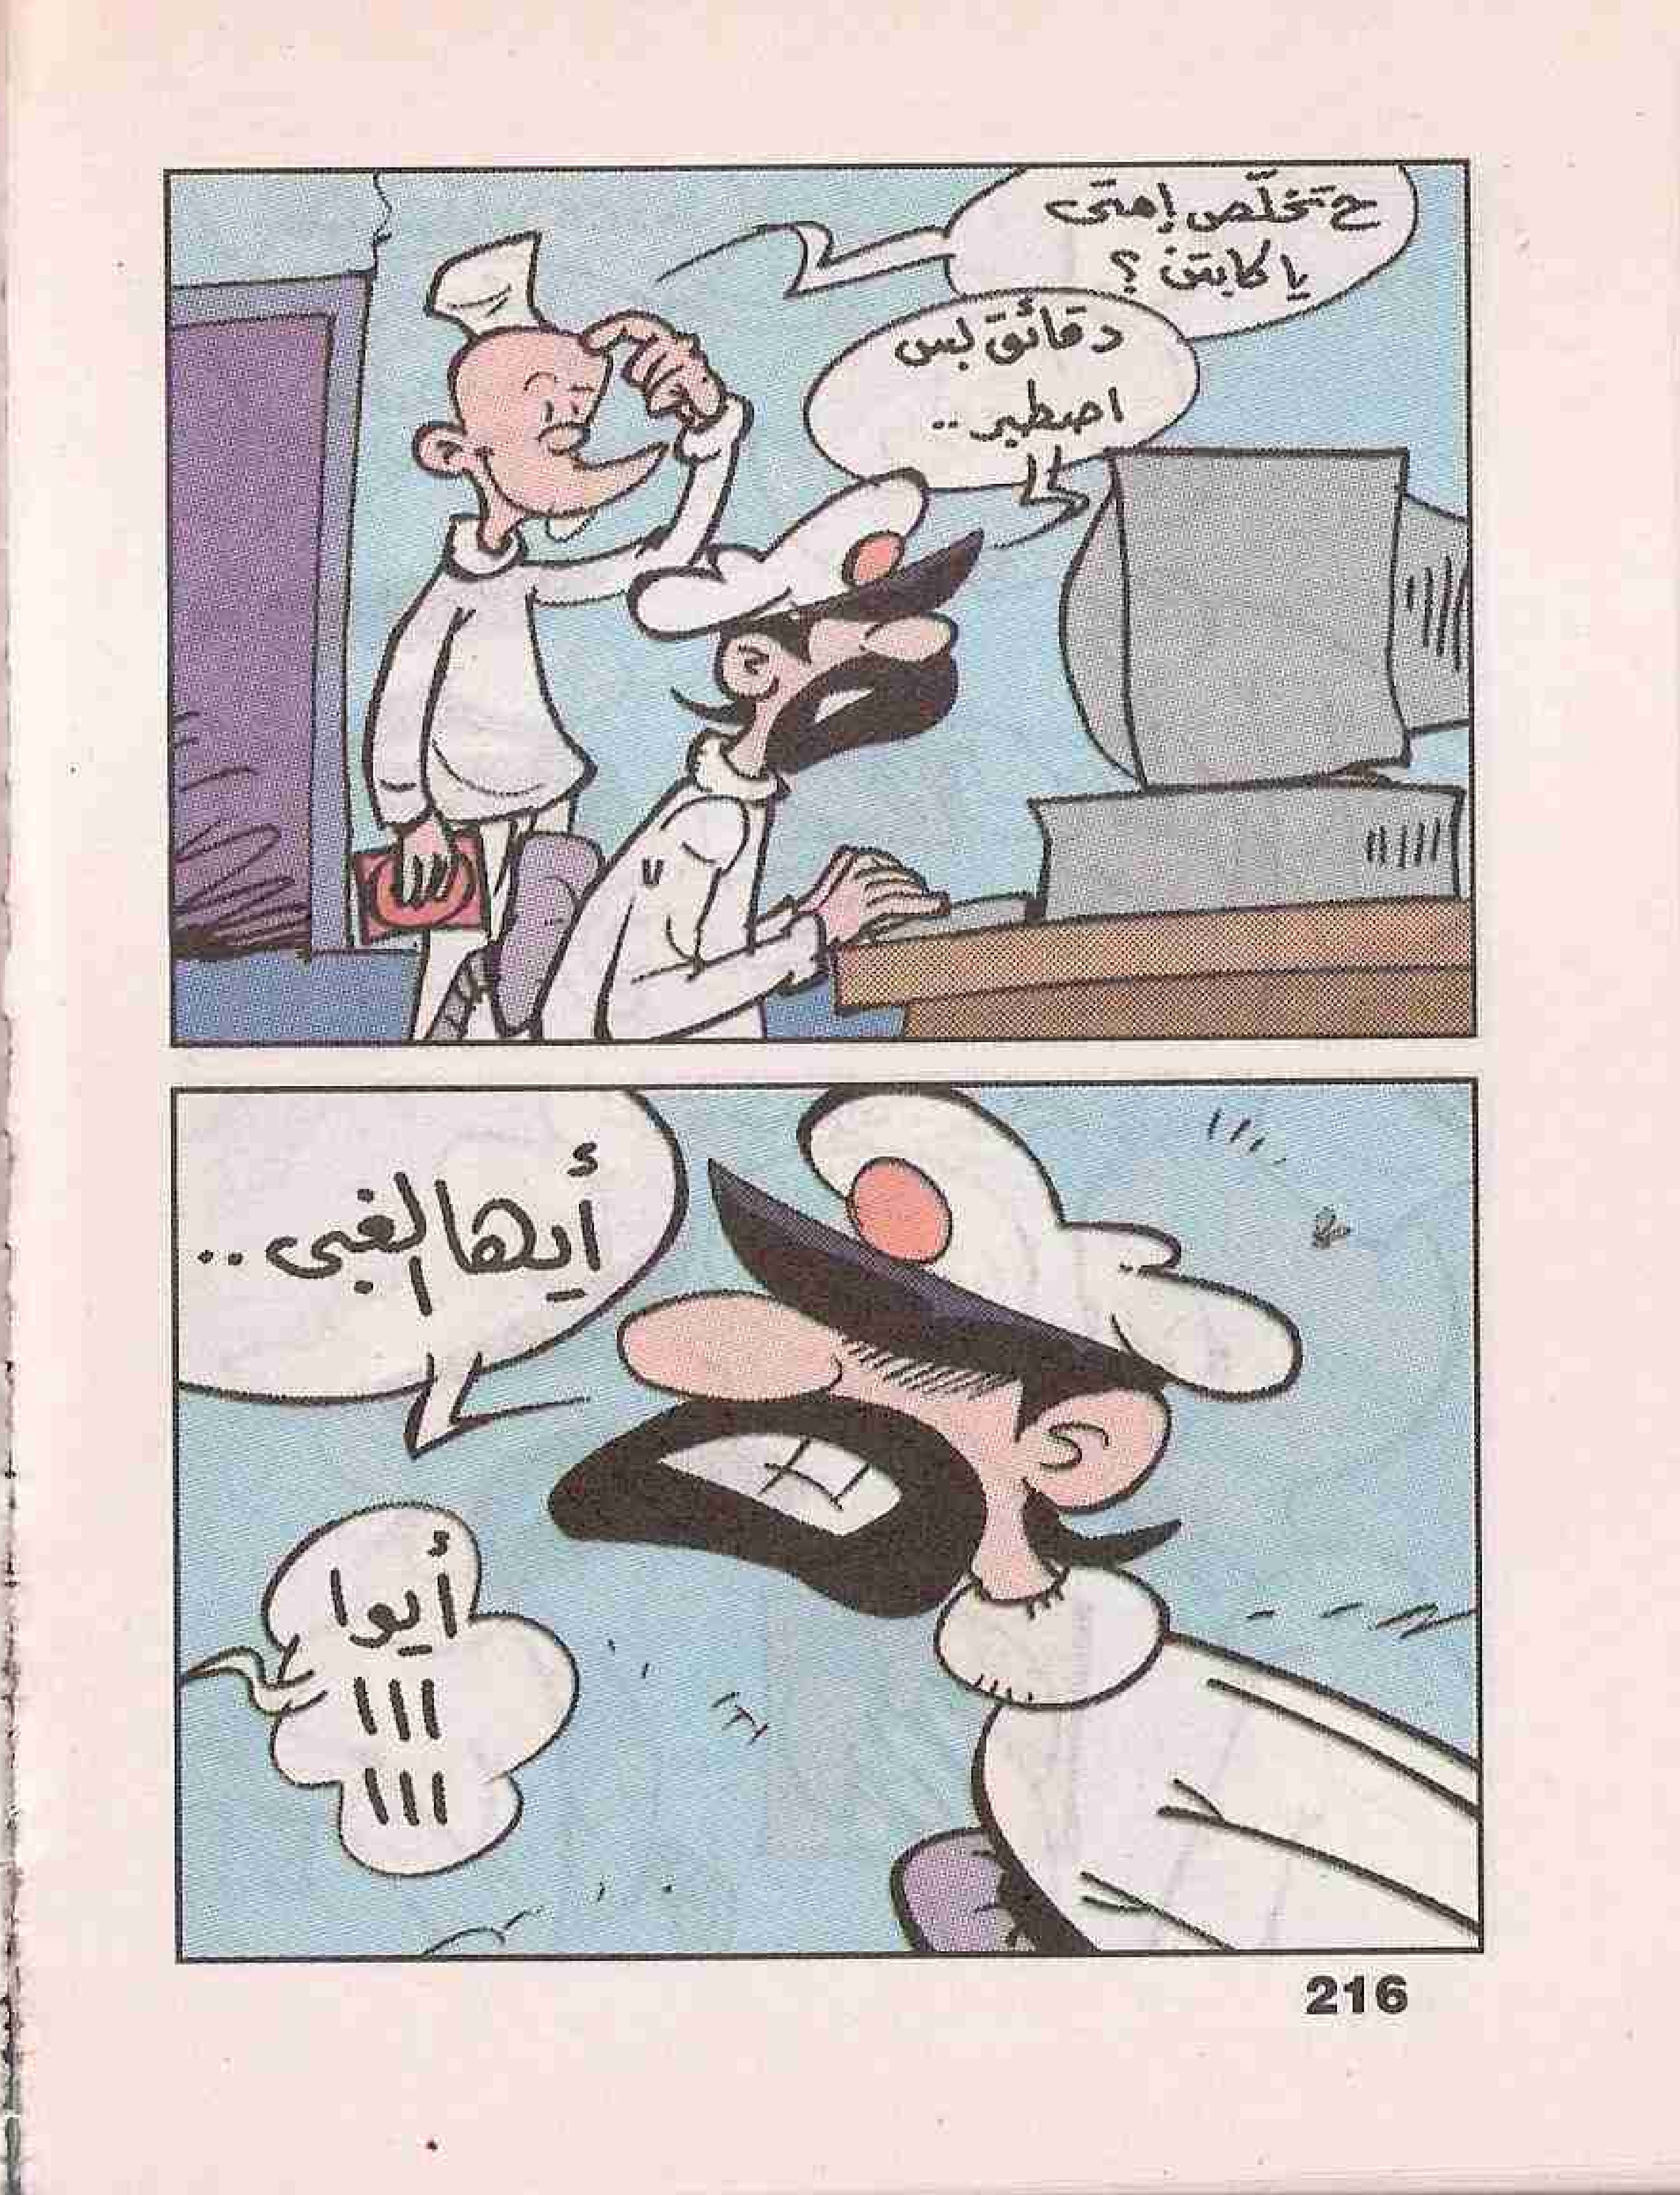 ح تخلّص إمتى
يا كابتن ؟
دقائق بس
اصطبر ..
أيها الغبى ..
أيوا
ا ا ا
ا ا ا
216